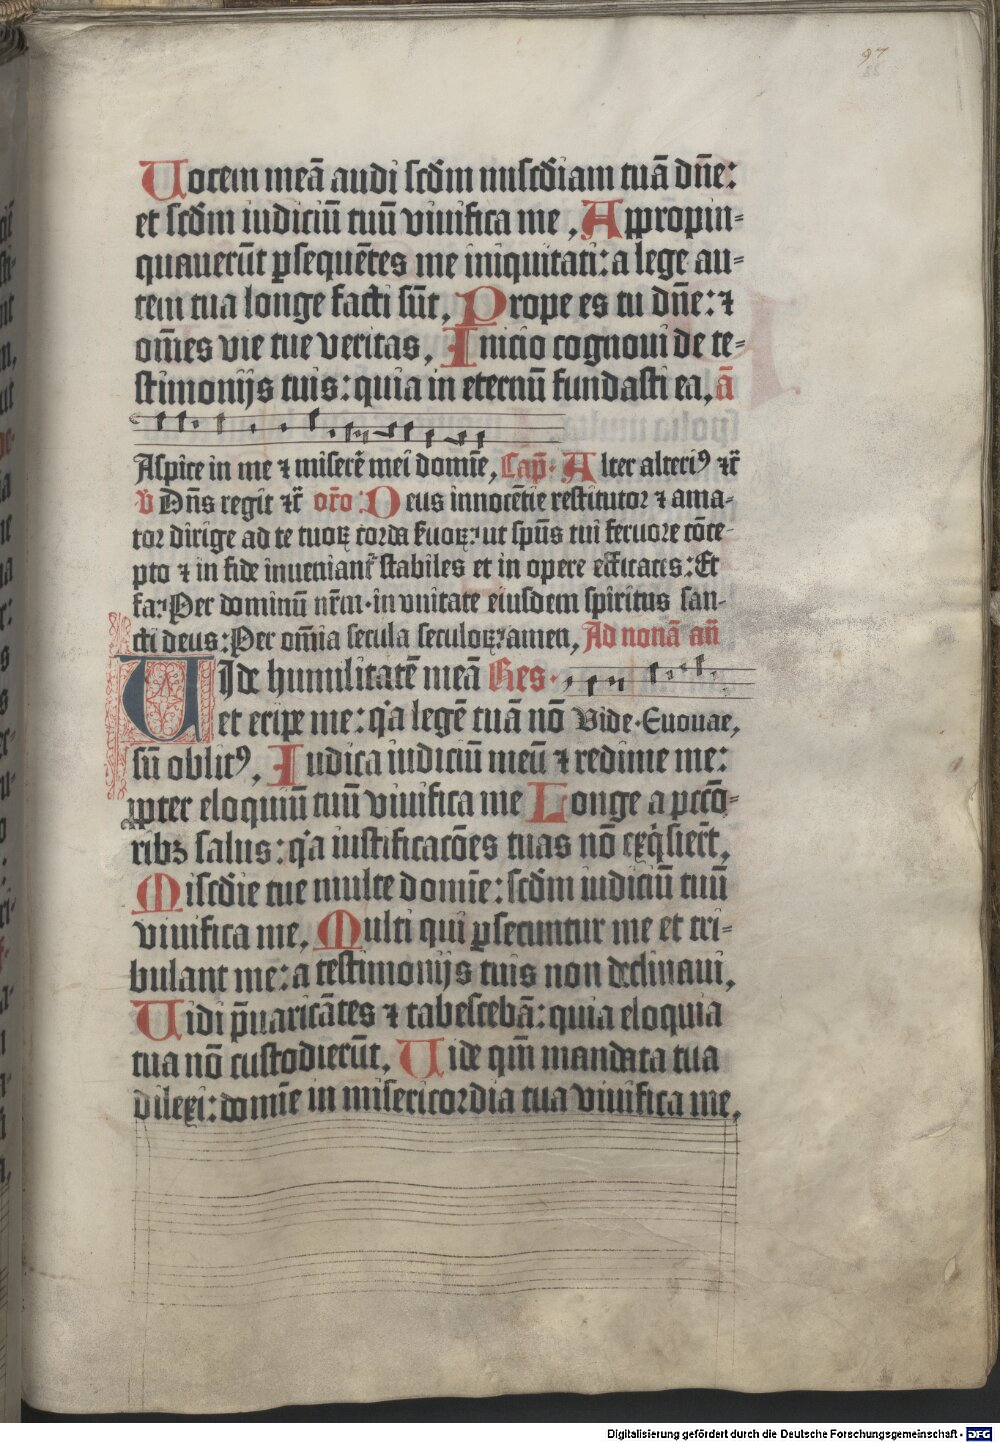 97
Uocem meā audi scd̄m miscd̄iam tuā dn̄e:
et scd̄m iudiciū tuū viuifica me, Appropin-
quauerūt ꝑsequētes me iniquitati: a lege au-
tem tua longe facti sūt, Prope es tu dn̄e: ⁊
om̄es vie tue veritas, Inicio cognoui de te-
stimonijs tuis: quia in eternū fundasti ea, ā
Aspice in me ⁊ miserē mei domīe, Cap̄. Alter alteriꝰ ⁊c̄
v̄ Dn̄s regit ⁊c̄ or̄o Deus innocētie restitutor ⁊ ama-
tor dirige ad te tuoꝝ corda ẜuoꝝ: ut spūs tui feruore cōce-
pto ⁊ in fide inueniant᷑ stabiles et in opere efficaces: Et
fa: Per dominū nr̄m. in vnitate eiusdem spiritus san-
cti deus: Per om̄ia secula seculoꝝ: amen, Ad nonā an̄
UIde humilitatē meā Res.
et eripe me: q̄a legē tuā nō Vide. Euouae,
sū oblitꝰ, Iudica iudiciū meū ⁊ redime me:
ꝓpter eloquiū tuū viuifica me Longe a pctō-
ribꝫ salus: q̄a iustificacōes tuas nō exq̄sier̄t,
Miscd̄ie tue multe domīe: scd̄m iudiciū tuū
viuifica me, Multi qui ꝑsecuntur me et tri-
bulant me: a testimonijs tuis non declinaui,
Uidi p̄uaricātes ⁊ tabescebā: quia eloquia
tua nō custodierūt, Uide qm̄ mandata tua
dilexi: domīe in misericordia tua viuifica me,
Digitalisierung gefördert durch die Deutsche Forschungsgemeinschaft - DFG